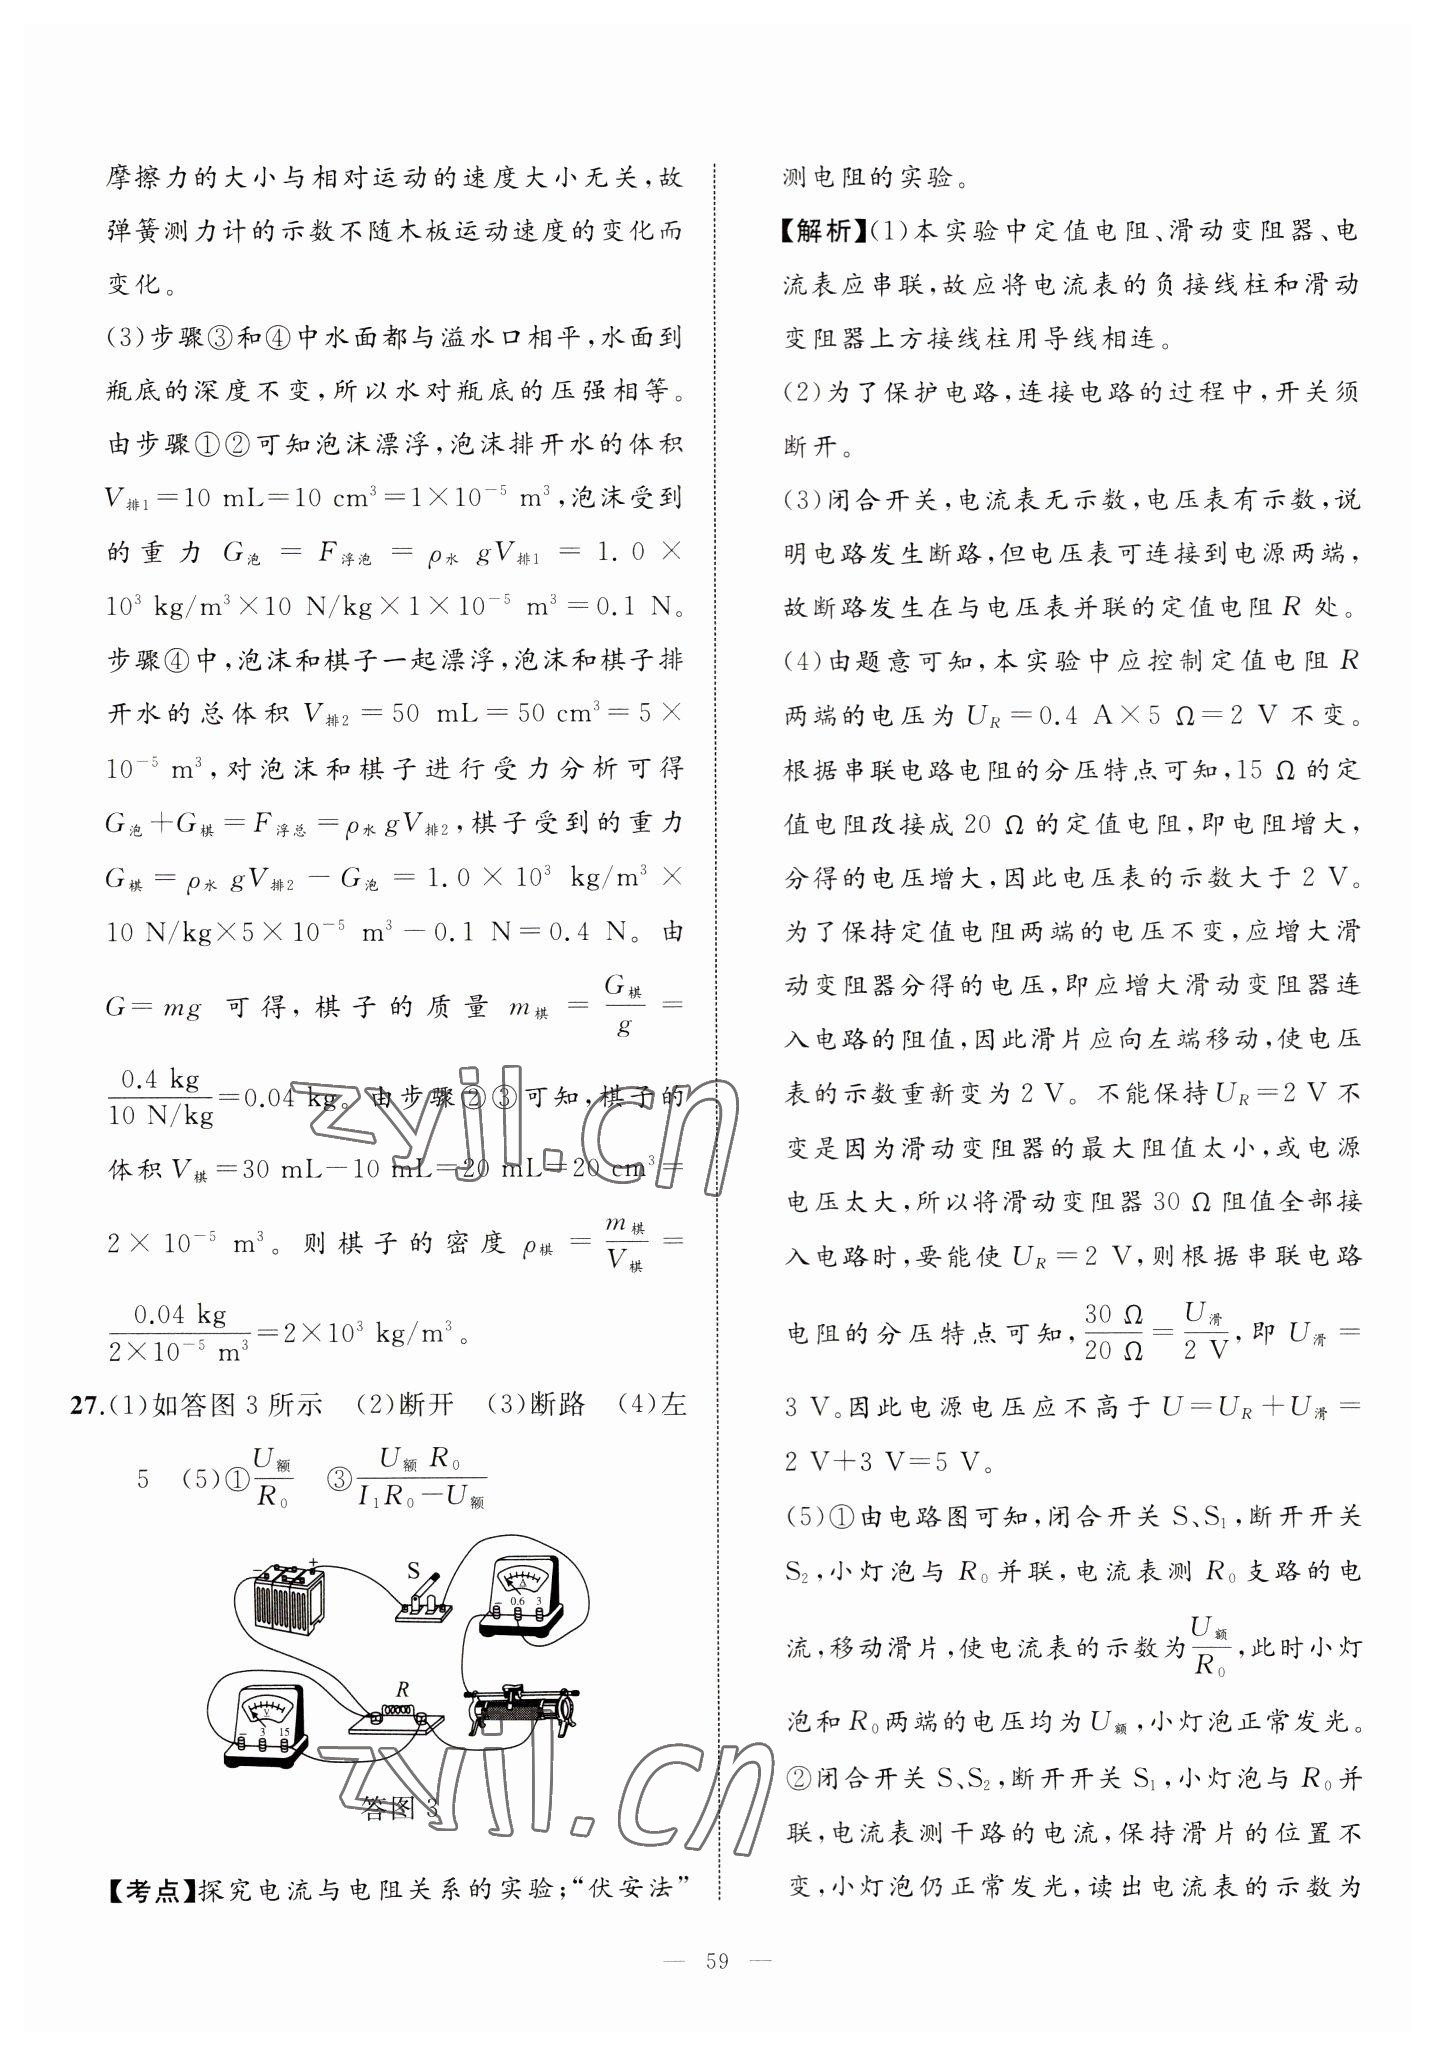 摩擦力的大小与相对运动的速度大小无关,故
弹簧测力计的示数不随木板运动速度的变化而
变化。
(3)步骤③和④中水面都与溢水口相平,水面到
瓶底的深度不变,所以水对瓶底的压强相等。
由步骤①②可知泡沫漂浮,泡沫排开水的体积
V排1=10 mL=10 cm³=1×10⁻⁵ m³,泡沫受到
的重力 G泡 = F浮泡 = ρ水 gV排1 = 1.0 ×
10³ kg/m³×10 N/kg×1×10⁻⁵ m³=0.1 N。
步骤④中,泡沫和棋子一起漂浮,泡沫和棋子排
开水的总体积 V排2=50 mL=50 cm³=5×
10⁻⁵ m³,对泡沫和棋子进行受力分析可得
G泡+G棋=F浮总=ρ水 gV排2,棋子受到的重力
G棋=ρ水 gV排2-G泡=1.0×10³ kg/m³×
10 N/kg×5×10⁻⁵ m³-0.1 N=0.4 N。由
G=mg 可得,棋子的质量 m棋=G棋/g=
0.4 kg/10 N/kg=0.04 kg。由步骤②③可知,棋子的
体积V棋=30 mL-10 mL=20 mL=20 cm³=
2×10⁻⁵ m³。则棋子的密度 ρ棋=m棋/V棋=
0.04 kg/2×10⁻⁵ m³=2×10³ kg/m³。
27.(1)如答图 3 所示 (2)断开 (3)断路 (4)左
5 (5)①U额/R₀ ③U额 R₀/I₁R₀-U额
+
-
S
A
- 0.6 3
R
V
- 3 15
答图 3
【考点】探究电流与电阻关系的实验;“伏安法”
测电阻的实验。
【解析】(1)本实验中定值电阻、滑动变阻器、电
流表应串联,故应将电流表的负接线柱和滑动
变阻器上方接线柱用导线相连。
(2)为了保护电路,连接电路的过程中,开关须
断开。
(3)闭合开关,电流表无示数,电压表有示数,说
明电路发生断路,但电压表可连接到电源两端,
故断路发生在与电压表并联的定值电阻 R 处。
(4)由题意可知,本实验中应控制定值电阻 R
两端的电压为 U_R=0.4 A×5 Ω=2 V 不变。
根据串联电路电阻的分压特点可知,15 Ω 的定
值电阻改接成 20 Ω 的定值电阻,即电阻增大,
分得的电压增大,因此电压表的示数大于 2 V。
为了保持定值电阻两端的电压不变,应增大滑
动变阻器分得的电压,即应增大滑动变阻器连
入电路的阻值,因此滑片应向左端移动,使电压
表的示数重新变为 2 V。不能保持 U_R=2 V 不
变是因为滑动变阻器的最大阻值太小,或电源
电压太大,所以将滑动变阻器 30 Ω 阻值全部接
入电路时,要能使 U_R=2 V,则根据串联电路
电阻的分压特点可知,30 Ω/20 Ω=U滑/2 V,即 U滑=
3 V。因此电源电压应不高于 U=U_R+U滑=
2 V+3 V=5 V。
(5)①由电路图可知,闭合开关 S、S₁,断开开关
S₂,小灯泡与 R₀ 并联,电流表测 R₀ 支路的电
流,移动滑片,使电流表的示数为U额/R₀,此时小灯
泡和 R₀两端的电压均为 U额,小灯泡正常发光。
②闭合开关 S、S₂,断开开关 S₁,小灯泡与 R₀并
联,电流表测干路的电流,保持滑片的位置不
变,小灯泡仍正常发光,读出电流表的示数为
— 59 —
zyjl.cn
zyjl.cn